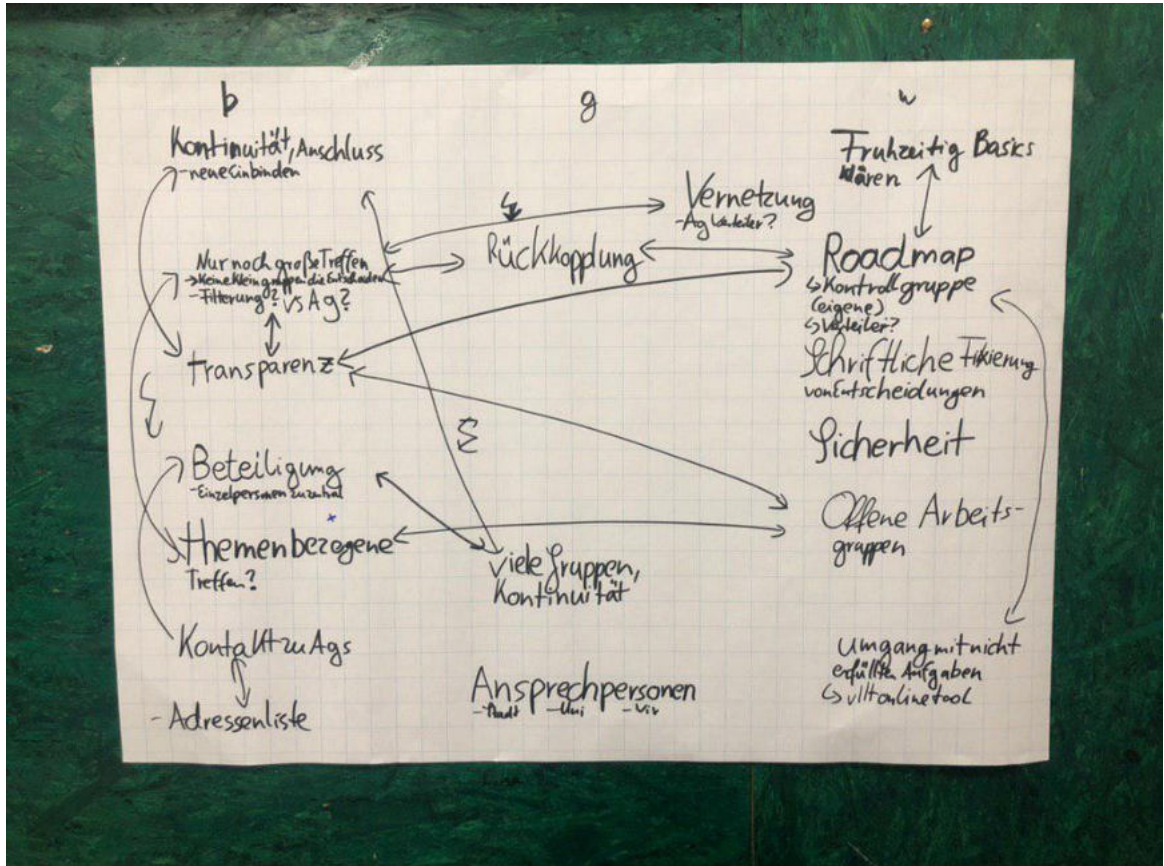 b
Kontinuität, Anschluss
-neue Einbinden
Nur noch große Treffen
→ Keine Kleingruppen die Entscheiden
- Filterung? vs Ag?
Transparenz
Beteiligung
-Einzelpersonen zu zentral
Themenbezogene
Treffen?
Kontakt zu Ags
- Adressenliste
g
Vernetzung
-Ag Verteiler?
Rückkopplung
viele Gruppen,
Kontinuität
Ansprechpersonen
-Stadt -Uni -Viv
w
Fruhzeitig Basics
klären
Roadmap
↳ Kontrollgruppe
(eigene)
↳ Verteiler?
Schriftliche Fixierung
von Entscheidungen
Sicherheit
Offene Arbeits-
gruppen
Umgang mit nicht
erfüllten Aufgaben
↳ vllt onlinetool